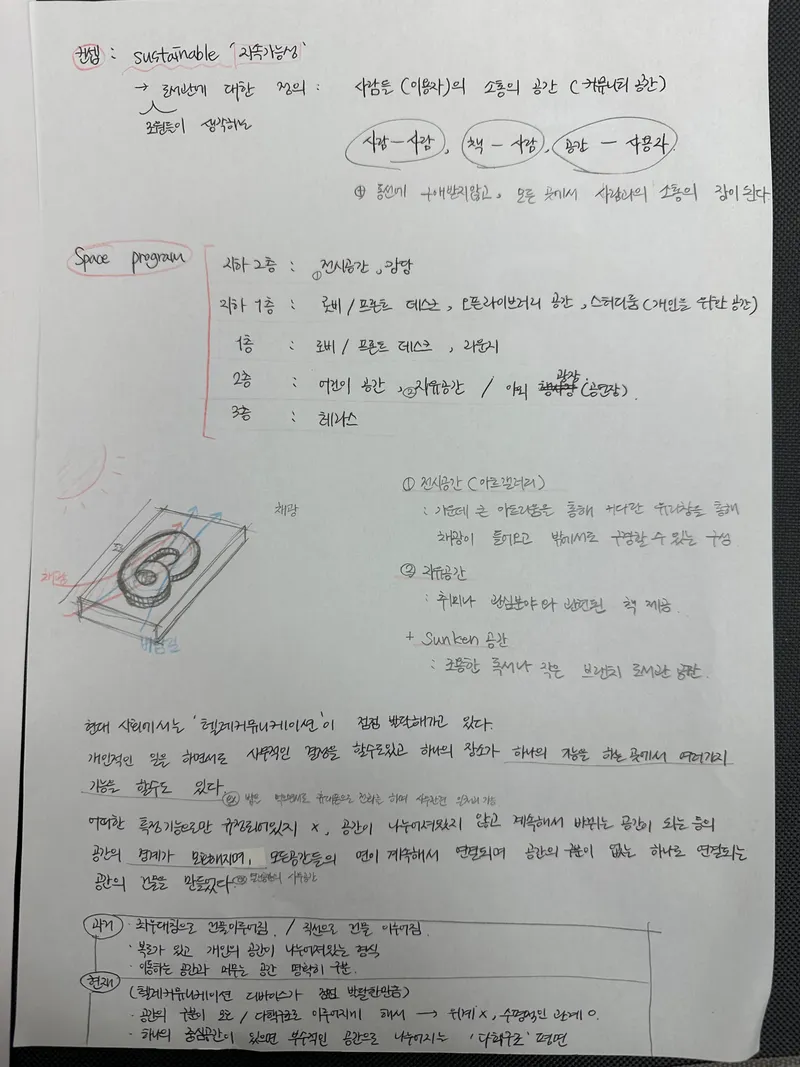 컨셉 : sustainable '지속가능성'
→ 도서관에 대한 정의 : 사람들 (이용자)의 소통의 공간 (커뮤니티 공간)
조원들이 생각하는
사람 - 사람, 책 - 사람, 공간 - 사용자.
⊕ 동선에 구애받지않고, 모든 곳에서 사람과의 소통의 장이 된다
Space program
지하 2층 : ① 전시공간, 강당
지하 1층 : 로비 / 프론트 데스크, 오픈라이브러리 공간, 스터디룸 (개인을 위한 공간)
1층 : 로비 / 프론트 데스크, 라운지
2층 : 어린이 공간, ② 자유공간 / 야외 광장 (공연장).
3층 : 테라스
① 전시공간 (아트갤러리)
: 가운데 큰 아트리움을 통해 커다란 유리창을 통해
채광이 들어오고 밖에서도 구경할 수 있는 구성.
채광
② 자유공간
: 취미나 관심분야와 관련된 책 제공.
채광
바람길
+ Sunken 공간
: 조용한 독서나 작은 브런치 도서관 공간.
현대 사회에서는 '텔레커뮤니케이션'이 점점 발달해가고 있다.
개인적인 일을 하면서도 사무적인 결정을 할수도있고 하나의 장소가 하나의 기능을 하는 곳에서 여러가지
기능을 할수도 있다.
ex) 밥을 먹으면서도 휴대폰으로 전화를 하며 사무관련
어떠한 특정기능으로만 규정되어있지 x, 공간이 나누어져있지 않고 계속해서 바뀌는 공간이 되는 등의
공간의 경계가 모호해지며, 모든공간들의 면이 계속해서 연결되며 공간의 구분이 없는 하나로 연결되는
공간의 건물을 만들었다.
과거 · 좌우대칭으로 건물이루어짐. / 직선으로 건물 이루어짐.
· 복도가 있고 개인의 공간이 나누어져있는 형식
· 이동하는 공간과 머무는 공간 명확히 구분.
현재 (텔레커뮤니케이션 디바이스가 점점 발달한만큼)
· 공간의 구분이 모호 / 다학구조로 이루어지게 해서 → 위계 x, 수평적인 관계 o.
· 하나의 중심공간이 있으면 부수적인 공간으로 나누어지는 '다학구조' 평면